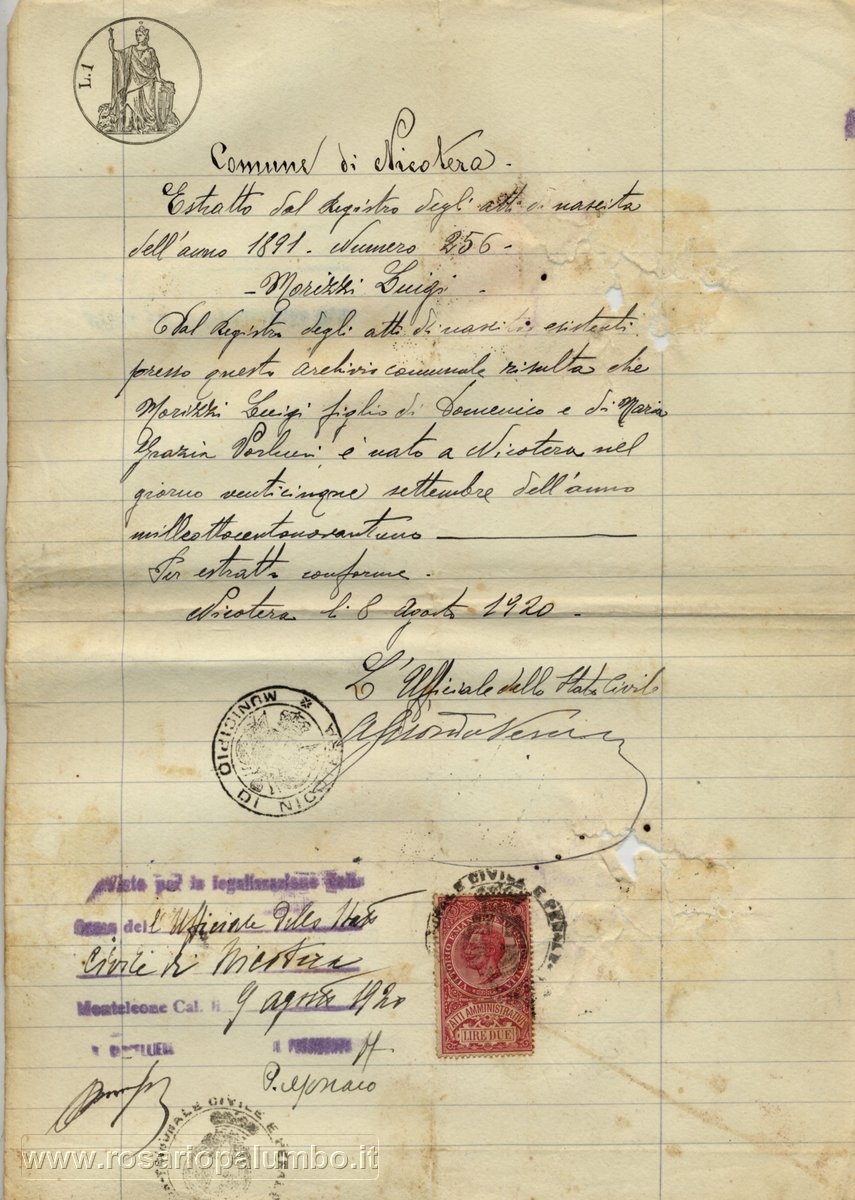 L. 1
Comune di Nicotera.
Estratto dal Registro degli atti di nascita
dell'anno 1891. Numero 256.
Morizzi Luigi.
Dal Registro degli atti di nascita esistenti
presso questo archivio comunale risulta che
Morizzi Luigi figlio di Domenico e di Maria
Grazia è nato a Nicotera nel
giorno venticinque settembre dell'anno
milleottocentonovantuno
Per estratto conforme.
Nicotera li 8 Agosto 1920.
L'Ufficiale dello Stato Civile
MUNICIPIO DI NICOTERA
Visto per la legalizzazione della
firma del l'Ufficiale dello Stato
Civile di Nicotera
Monteleone Cal. li 9 agosto 1920
IL CANCELLIERE IL PRESIDENTE
P. Monaco
VITTORIO EMANUELE
ATTI AMMINISTRATIVI
LIRE DUE
TRIBUNALE CIVILE E PENALE
TRIBUNALE CIVILE E PENALE
www.rosariopalumbo.it